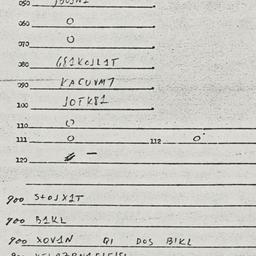 050
060 0
070 0
080 GE1KOJL1T
090 KACUVM7
100 JOTK81
110 0
111 0 112 0
120 # —
900 S+OJX1T
900 B1KL
900 XOV1N QI DOS B1KL